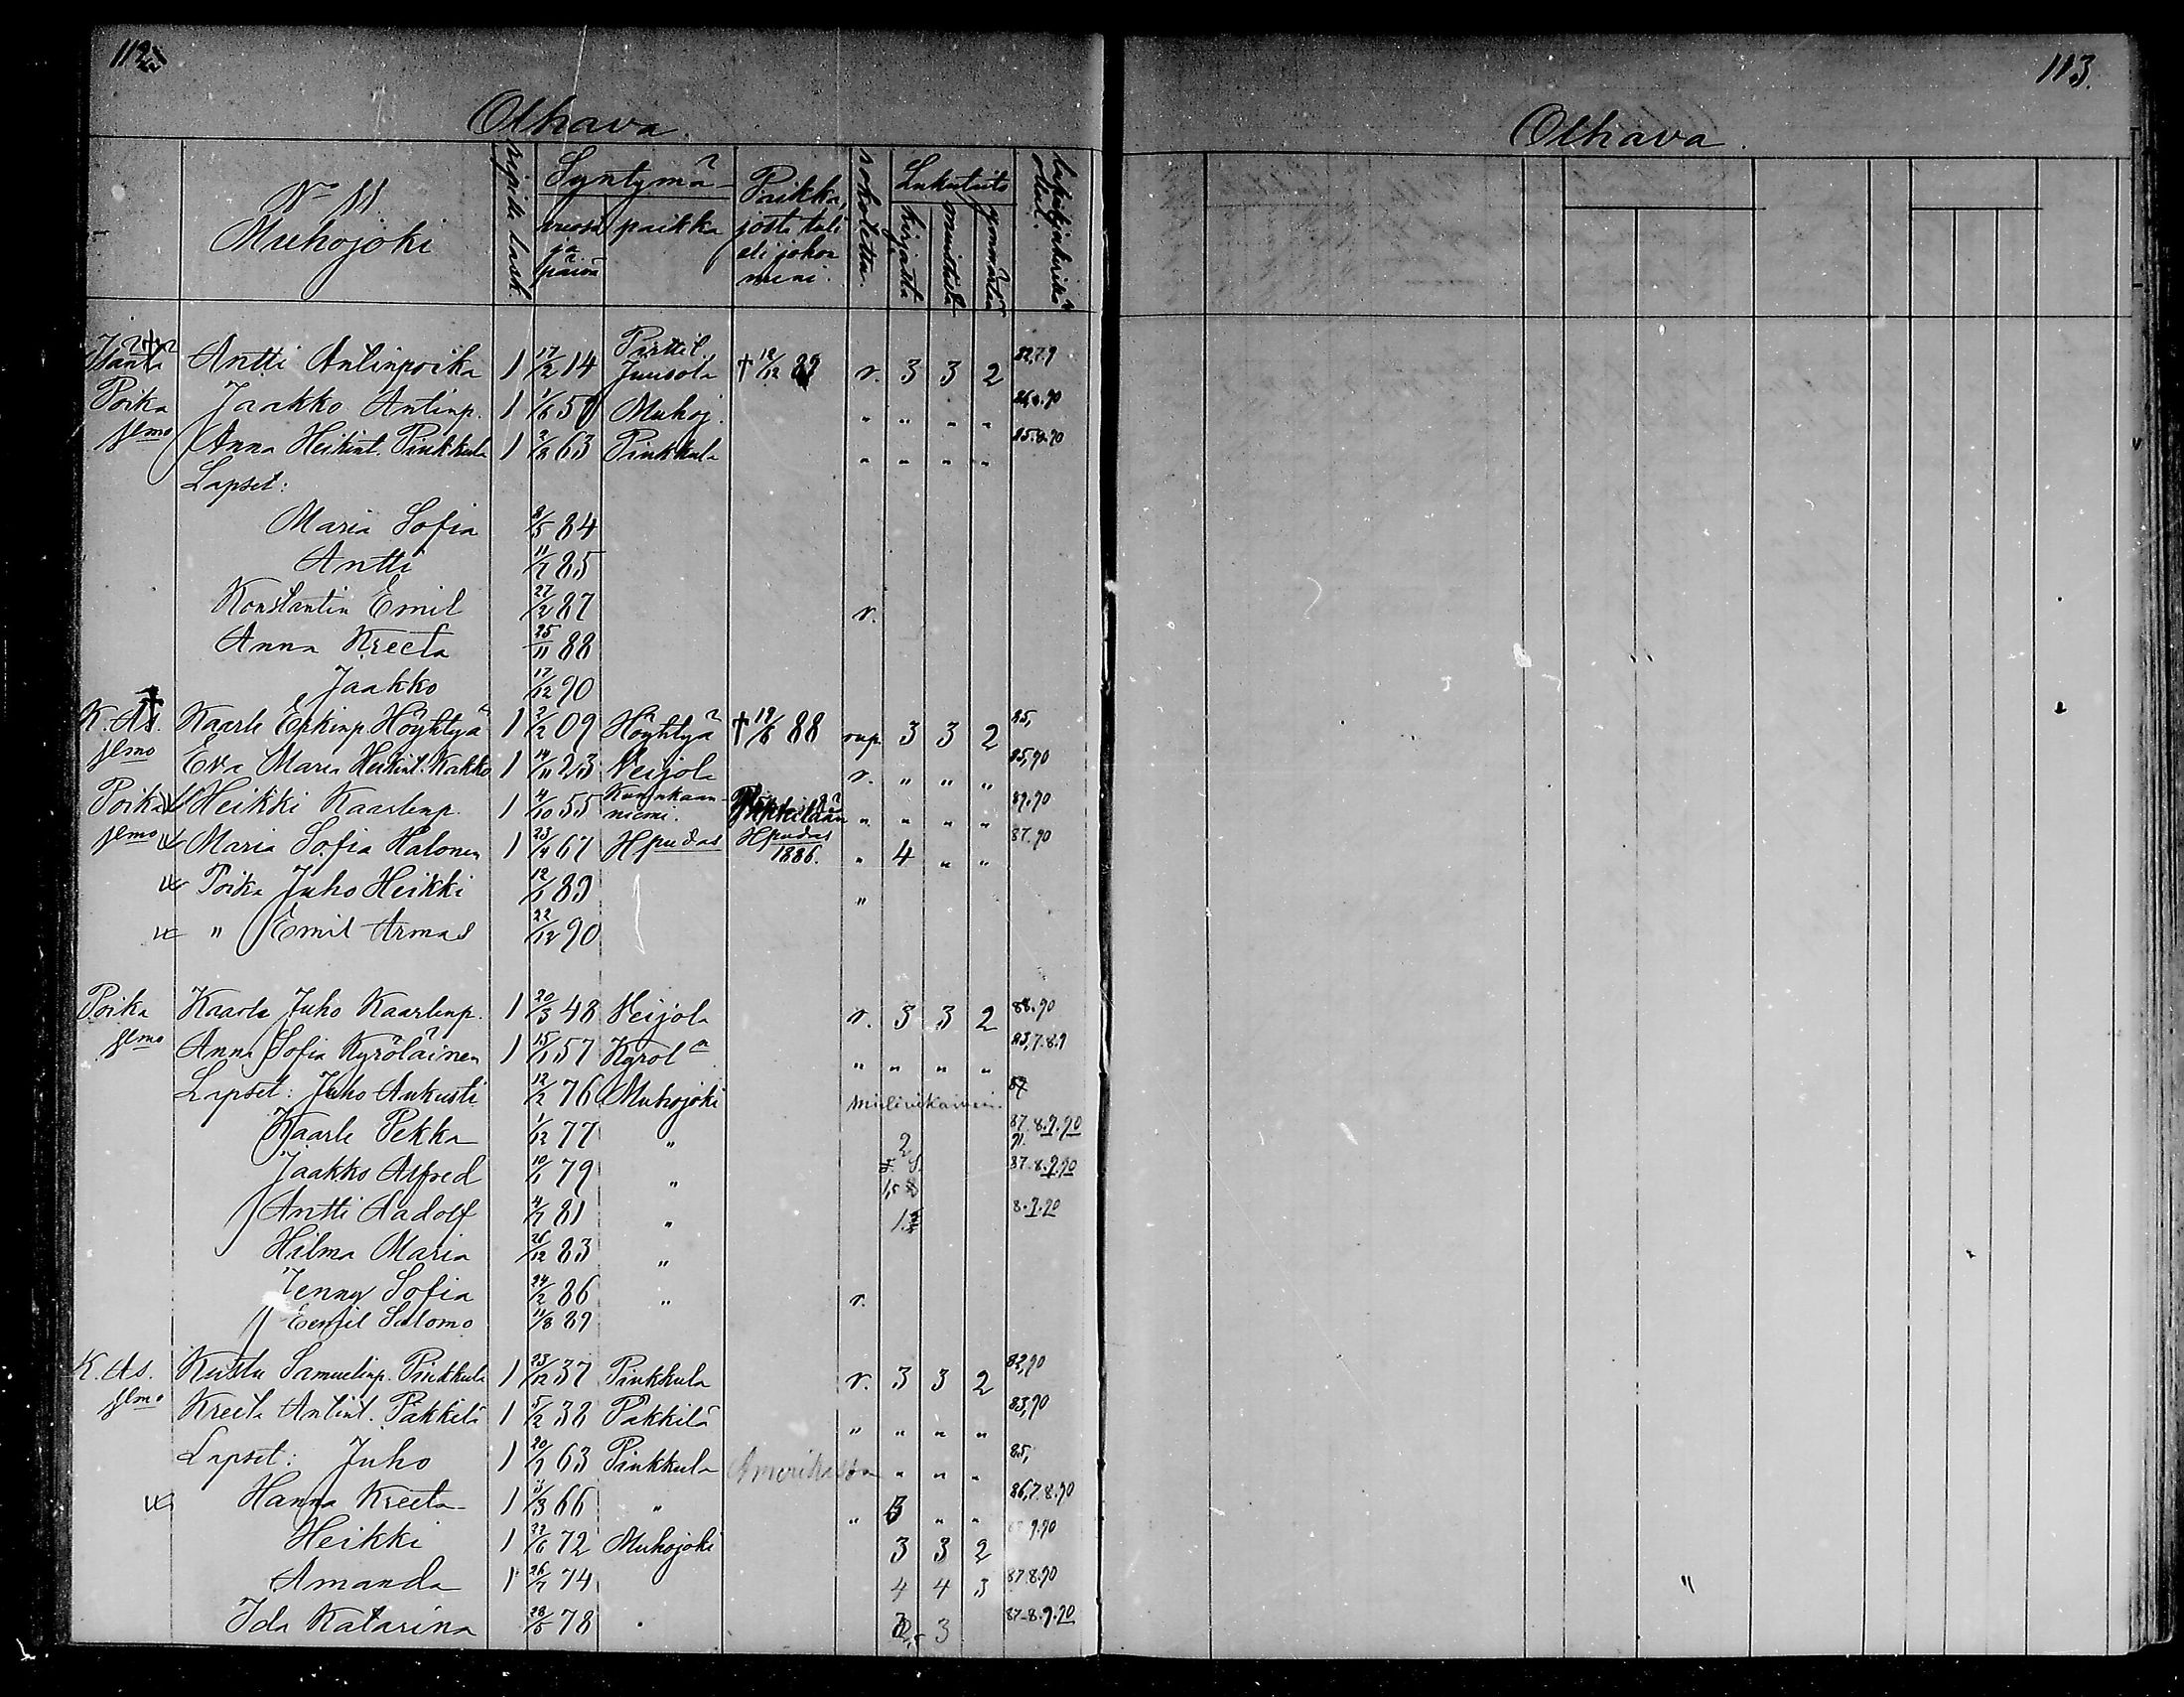 112
113.
Olhava.
Olhava.
No 11
Muhojoki
ripille lask.
Syntymä-
vuosi ja päivä
paikka
Paikka, josta tuli eli johon meni.
rokotettu.
Lukutaito
kirjasta
ymmärtää
Isäntä Antti Antinpoika 1 17/2 14 Pirttil Juusola † 12/12 89 r. 3 3 2 82,7.9
Poika Jaakko Antinp. 1 Muhoj. " " " "
Anna Heikint. Pinkkula 1 2/2 63 Pinkkula " " " " 85.8.90
Lapset:
Maria Sofia 8/5 84
Antti 11/7 85
Konstantin Emil 27/2 87 r.
Anna Kreeta 25/11 88
Jaakko 17/12 90
K. As. Kaarle Erkinp. Höyhtyä 1 2/2 09 Höyhtyä † 19/6 88 rup. 3 3 2 85,
Eva Maria Heikint. Kakko 1 14/11 23 Veijola r. " " " 85,90
Poika Heikki Kaarlenp. 1 4/10 55 niemi. " " " " 89.90
Maria Sofia Halonen 1 23/4 67 Hpudas Hpudas 1886. " 4 " " 87.90
Poika Juho Heikki 12/1 89 "
" Emil Armas 22/12 90
Poika Kaarle Juho Kaarlenp. 1 20/3 48 Veijola r. 3 3 2 88.90
Anna Sofia Kyröläinen 1 15/1 57 Kyrölä " " " " 83,7.8.9
Lapset: Juho Aukusti 12/2 76 Muhojoki mielivikainen.
Kaarle Pekka 1/12 77 " 2 87.8.9.90 91.
Jaakko Alfred 10/1 79 " 87.8.9.90
Antti Aadolf 4/7 81 " 8.9.90
Hilma Maria 26/12 83 "
Jenny Sofia 24/2 86 " r.
Eemil Salomo 11/8 89
K. As. Kustu Samuelinp. Pinkkula 1 23/12 37 Pinkkula r. 3 3 2 82,90
Kreeta Antint. Pakkila 1 5/2 38 Pakkila " " " " 83,90
Lapset: Juho 1 20/7 63 Pinkkula Amerikassa " " " 85,
Hanna Kreeta 1 66 " " 3 " " 86,7.8.90
Heikki 1 72 Muhojoki 3 3 2 9.90
Amanda 1 26/7 74 4 4 3 87.8.90
Ida Katarina 28/5 78 3 87-8.9.90